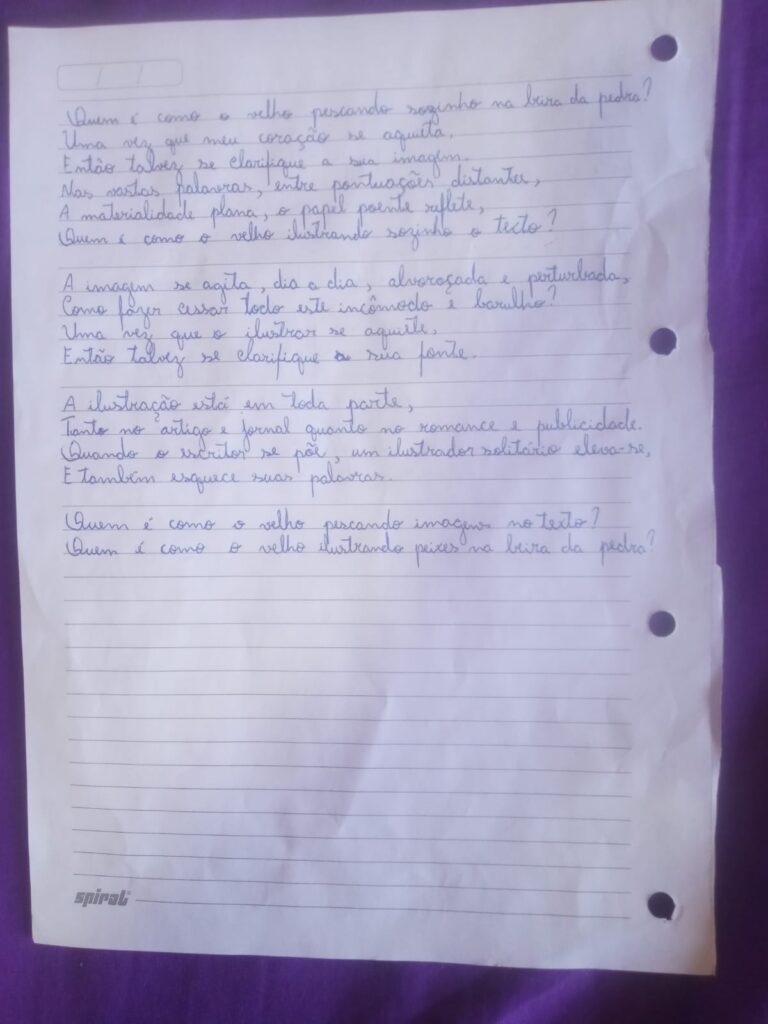 Quem é como o velho pescando sozinho na beira da pedra?
Uma vez que meu coração se aquieta,
Então talvez se clarifique a sua imagem.
Nas vastas palavras, entre pontuações distantes,
A materialidade plana, o papel poente reflete,
Quem é como o velho ilustrando sozinho o texto?
A imagem se agita, dia a dia, alvoroçada e perturbada,
Como fazer cessar todo este incômodo e barulho?
Uma vez que o ilustrar se aquiete,
Então talvez se clarifique a sua fonte.
A ilustração está em toda parte,
Tanto no artigo e jornal quanto no romance e publicidade.
Quando o escritor se põe, um ilustrador solitário eleva-se,
E também esquece suas palavras.
Quem é como o velho pescando imagens no texto?
Quem é como o velho ilustrando peixes na beira da pedra?
spiral